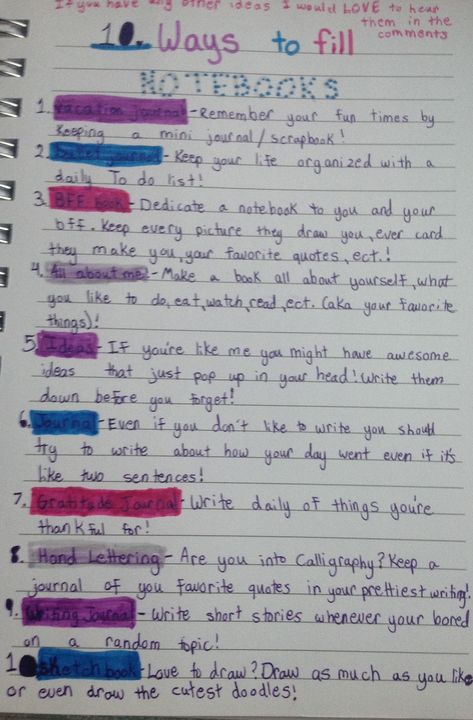 If you have any other ideas I would LOVE to hear
them in the
comments
10. Ways to fill
NOTEBOOKS
1. Vacation Journal - Remember your fun times by
keeping a mini journal/scrapbook!
2. bullet journal - Keep your life organized with a
daily To do list!
3. BFF book - Dedicate a notebook to you and your
bff. Keep every picture they draw you, ever card
they make you, your favorite quotes, ect.!
4. All about me - Make a book all about yourself, what
you like to do, eat, watch, read, ect. (aka your favorite
things)!
5. Ideas - If you're like me you might have awesome
ideas that just pop up in your head! Write them
down before you forget!
6. Journal - Even if you don't like to write you should
try to write about how your day went even if it's
like two sentences!
7. Gratitude Journal - Write daily of things you're
thankful for!
8. Hand Lettering - Are you into Calligraphy? Keep a
journal of you favorite quotes in your prettiest writing!
9. Writing Journal - Write short stories whenever your bored
on a random topic!
10 Sketchbook - Love to draw? Draw as much as you like
or even draw the cutest doodles!